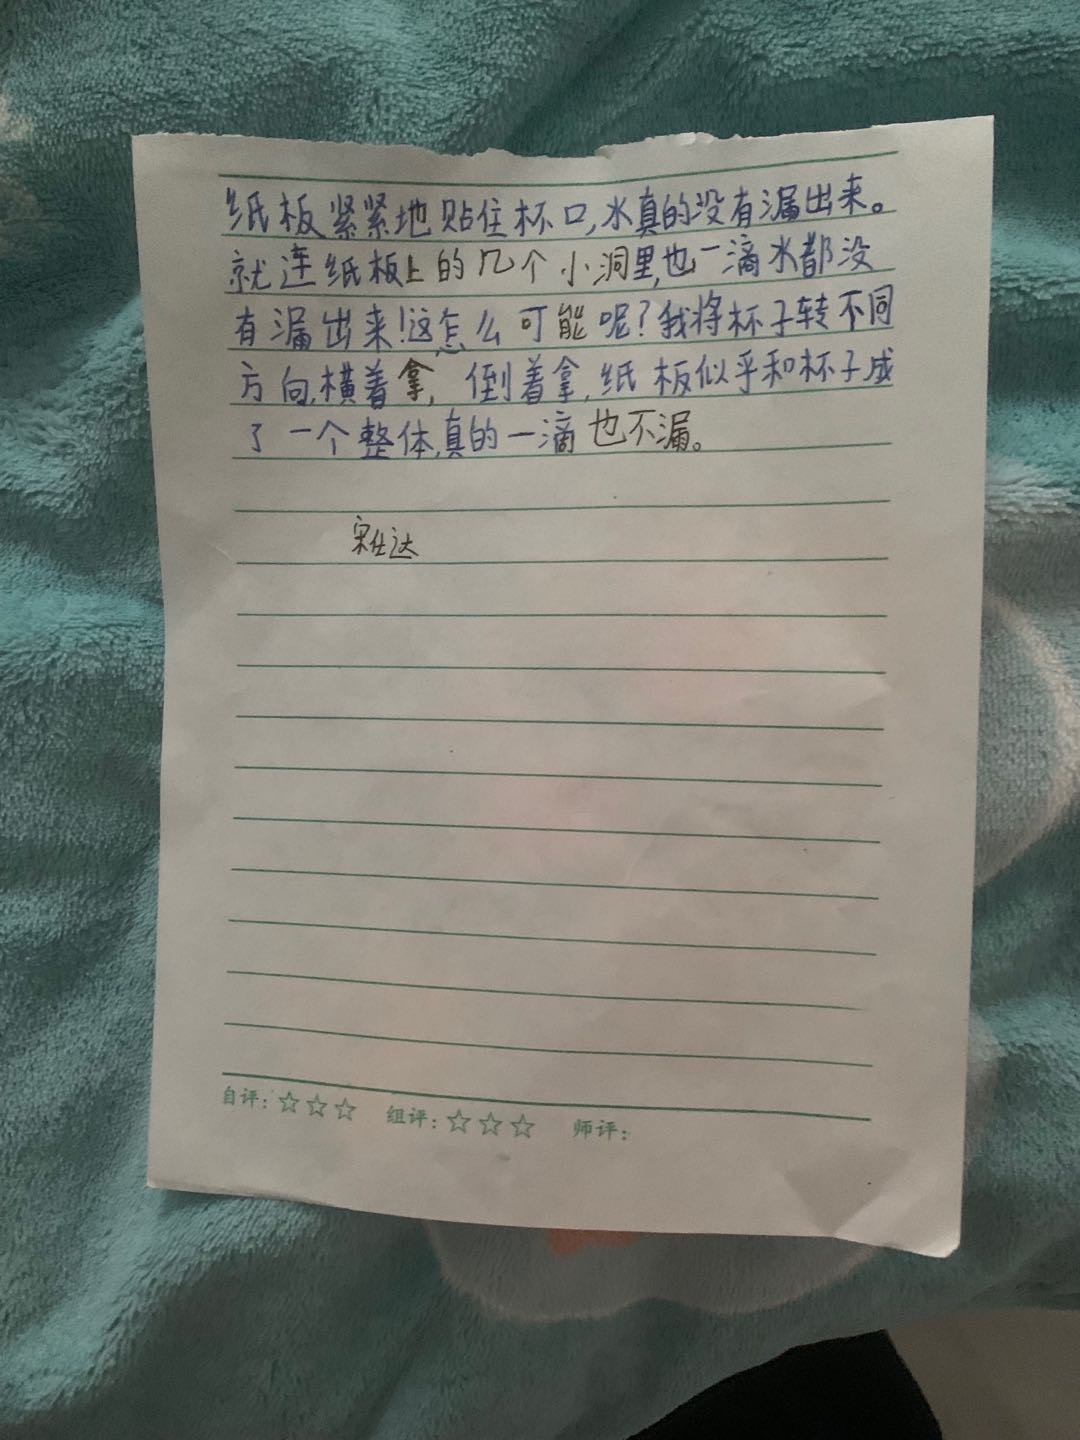 纸板紧紧地贴住杯口,水真的没有漏出来。
就连纸板上的几个小洞里,也一滴水都没
有漏出来!这怎么可能呢?我将杯子转不同
方向,横着拿,倒着拿,纸板似乎和杯子成
了一个整体,真的一滴也不漏。
宋仕达
自评:☆☆☆ 组评:☆☆☆ 师评: